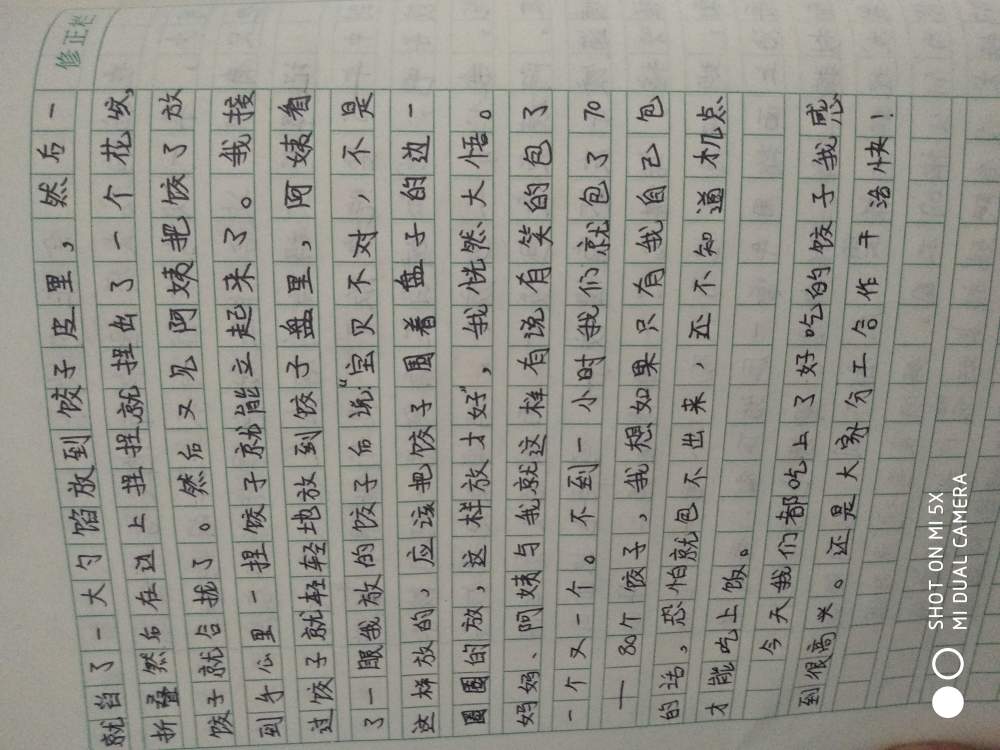 修正栏
就舀了一大勺馅放到饺子皮里，然后一
折叠然后在边上捏捏就捏出了一个花纹，
饺子就合拢了。然后又见阿姨把饺了放
到手心里一捏饺子就能立起来了。我接
过饺子就轻轻地放到饺子盘里，阿姨看
了一眼我放的饺子后说“宝贝不对，不是
这样放的，应该把饺子围着盘子的边一
圈圈的放，这样放才好”，我恍然大悟。
妈妈、阿姨与我就这样有说有笑的包了
一个又一个。不到一小时我们就包了70
—80个饺子，我想如果只有我自己包
的话，恐怕就包不出来，还不知道机点
才能吃上饭。
今天我们都吃上了好吃的饺子我感
到很高兴。还是大家分工合作干活快！
SHOT ON MI 5X
MI DUAL CAMERA